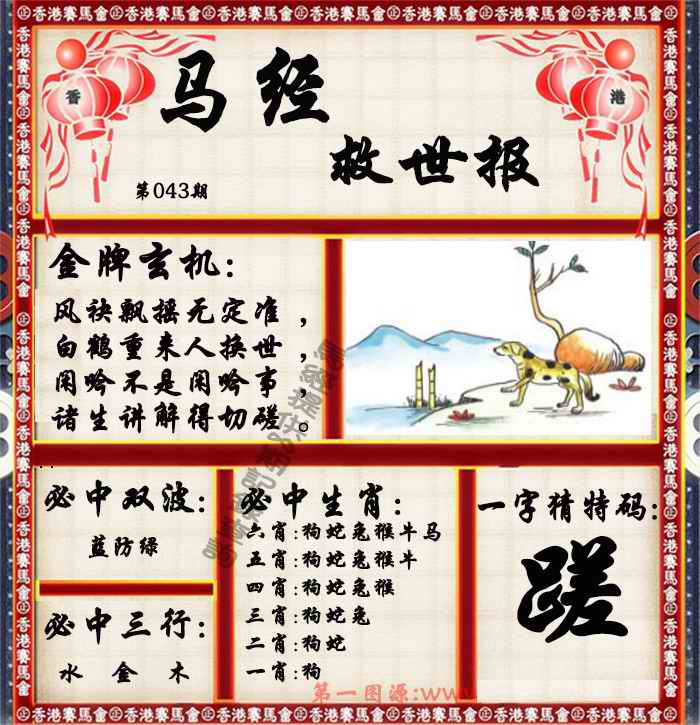 香港賽馬會
香
港
马经
救世报
第043期
金牌玄机:
风袂飘摇无定准，
白鹤重来人换世，
闲吟不是闲吟事，
诸生讲解得切磋。
必中双波:
蓝防绿
必中三行:
水 金 木
必中生肖:
六肖:狗蛇兔猴牛马
五肖:狗蛇兔猴牛
四肖:狗蛇兔猴
三肖:狗蛇兔
二肖:狗蛇
一肖:狗
一字猜特码:
蹉
第一图源:ww